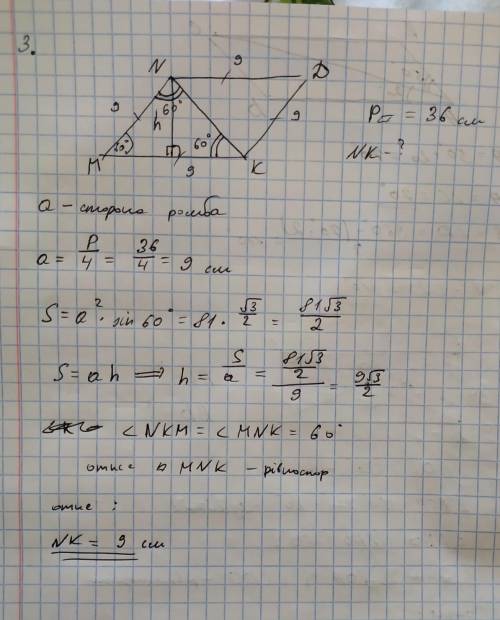 3.
N 9 D
9 60° h 9
60° 60°
M 9 K
P▱ = 36 см
NK - ?
a - сторона ромба
a = P/4 = 36/4 = 9 см
S = a² · sin 60° = 81 · √3/2 = 81√3/2
S = a h ⟹ h = S/a = (81√3/2)/9 = 9√3/2
∠NKM = ∠MNK = 60°
отже △ MNK - рівностор
отже :
NK = 9 см